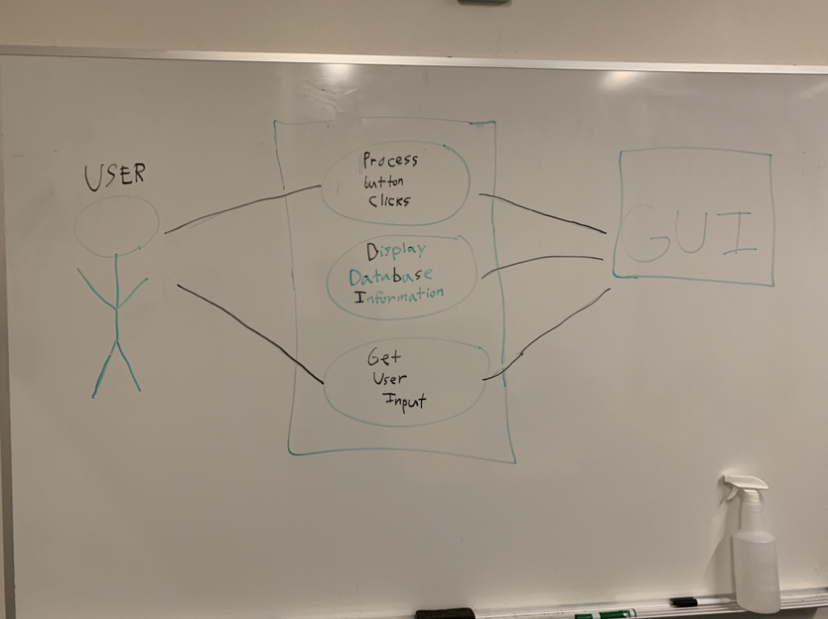 USER
Process
button
clicks
Display
Database
Information
Get
User
Input
GUI